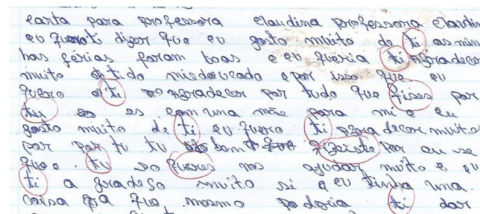 carta para professora claudina professora claudin
eu queroti dizer que eu gosto muito de ti as min
has férias foram boas e eu queria ti agradecer
muito ti do miedoucado e por isso que eu
quero ti agradecer por tudo que fises por
es com uma mãe para mi e eu
gosto muito de ti eu quero ti agradecer muito
por tu tu fizeste por
que. tu so queres nos ajudar muito e eu
ti a gradeso muito si eu tinha uma
coisa que mesmo poderia ti dar